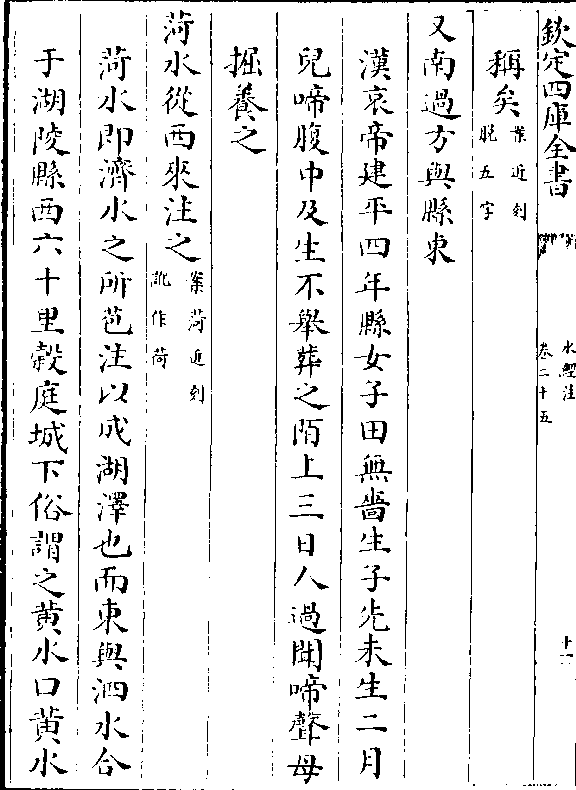 欽定四庫全書
水經注
卷二十五
十一
稱矣
案近刻
脫五字
又南過方與縣東
漢哀帝建平四年縣女子田無嗇生子先未生二月
兒啼腹中及生不舉葬之陌上三日人過聞啼聲母
掘養之
菏水從西來注之
案菏近刻
訛作荷
菏水即濟水之所苞注以成湖澤也而東與泗水合
于湖陵縣西六十里糓庭城下俗謂之黄水口黄水